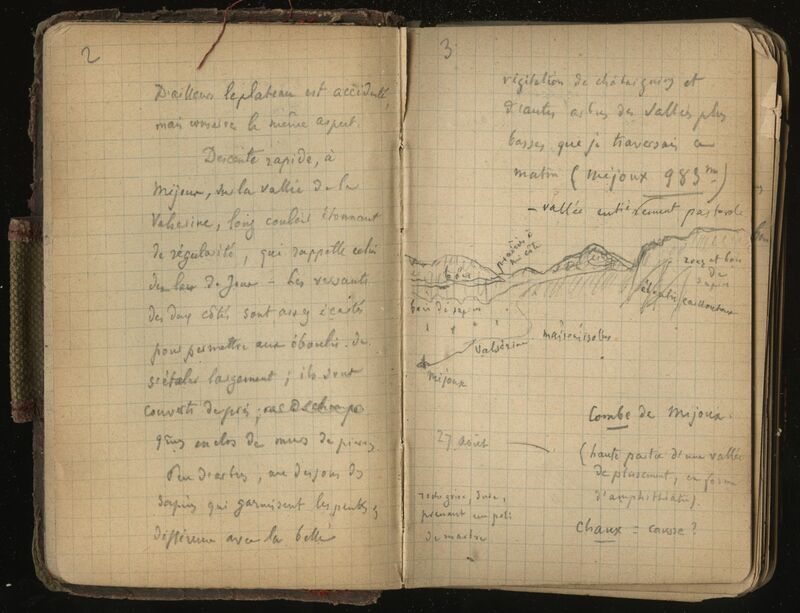 2
D'ailleurs le plateau est accidenté,
mais conserve le même aspect.
Descente rapide, à
Mijoux, sur la vallée de la
Valserine, long couloir étonnant
de régularité, qui rappelle celui
du lac de Joux – Les versants
des deux côtés sont assez écartés
pour permettre aux éboulis de
s'étaler largement ; ils sont
couverts de prés ;
enclos de murs de pierres
Peu d'arbres, au dessous des
sapins qui garnissent les pentes ;
différence avec la belle
3
végétation de châtaigniers et
d'autres arbres des vallées plus
basses que je traversais ce
matin (Mijoux 983 m)
– vallée entièrement pastorale
prairie à
mi côte
bois
rocs et bois
de
sapins
éboulis caillouteux
bois de sapins
Valserine
maisons isolées
Mijoux
Combe de Mijoux.
27 août
(haute partie d'une vallée
de plissement, en forme
d'amphithéâtre)
roche grise, dure,
prenant un poli
de marbre
Chaux = causse ?